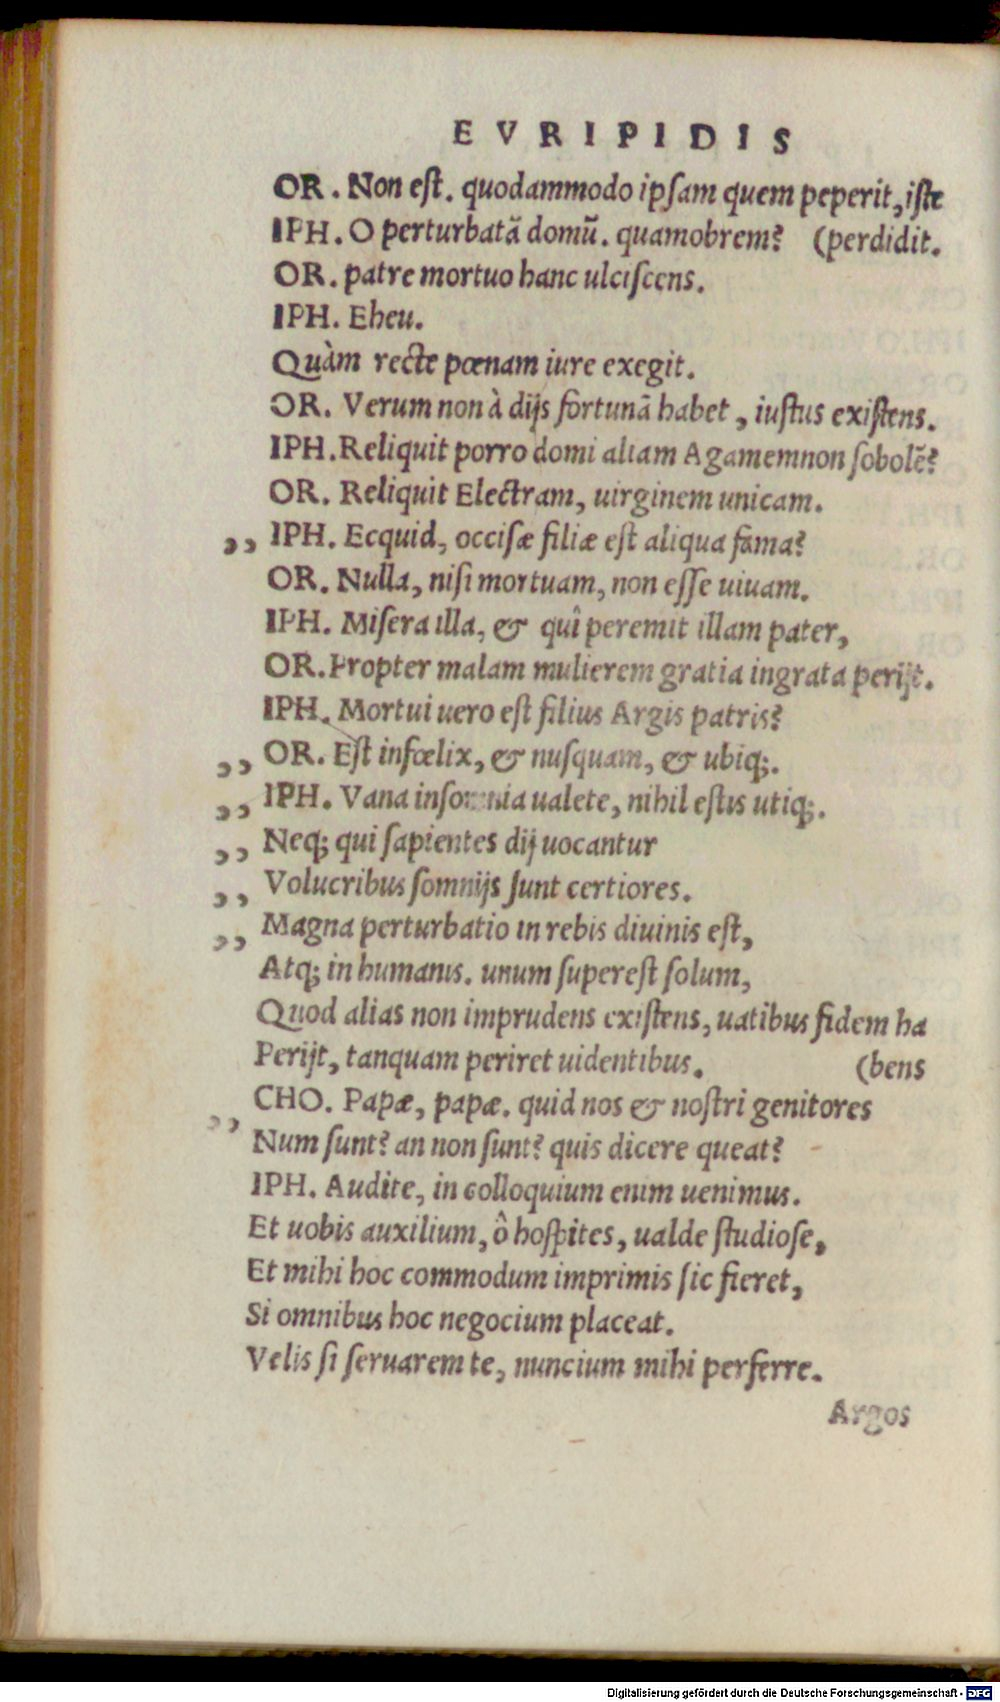 EVRIPIDIS
OR. Non eſt. quodammodo ipſam quem peperit, iſte
IPH. O perturbatā domū. quamobrem? (perdidit.
OR. patre mortuo hanc ulciſcens.
IPH. Eheu.
Quàm recte pœnam iure exegit.
OR. Verum non à dijs fortunā habet, iuſtus exiſtens.
IPH. Reliquit porro domi aliam Agamemnon ſobolē?
OR. Reliquit Electram, uirginem unicam.
,, IPH. Ecquid, occiſæ filiæ eſt aliqua fama?
OR. Nulla, niſi mortuam, non eſſe uiuam.
IPH. Miſera illa, & quî peremit illam pater,
OR. Propter malam mulierem gratia ingrata perijt.
IPH. Mortui uero eſt filius Argis patris?
,, OR. Eſt infœlix, & nuſquam, & ubiq;.
,, IPH. Vana inſomnia ualete, nihil eſtis utiq;.
,, Neq; qui ſapientes dij uocantur
,, Volucribus ſomnijs ſunt certiores.
,, Magna perturbatio in rebis diuinis eſt,
Atq; in humanis. unum ſupereſt ſolum,
Quod alias non imprudens exiſtens, uatibus fidem ha
Perijt, tanquam periret uidentibus. (bens
,, CHO. Papæ, papæ. quid nos & noſtri genitores
Num ſunt? an non ſunt? quis dicere queat?
IPH. Audite, in colloquium enim uenimus.
Et uobis auxilium, ô hoſpites, ualde ſtudioſe,
Et mihi hoc commodum imprimis ſic fieret,
Si omnibus hoc negocium placeat.
Velis ſi ſeruarem te, nuncium mihi perferre.
Argos
Digitalisierung gefördert durch die Deutsche Forschungsgemeinschaft - DFG